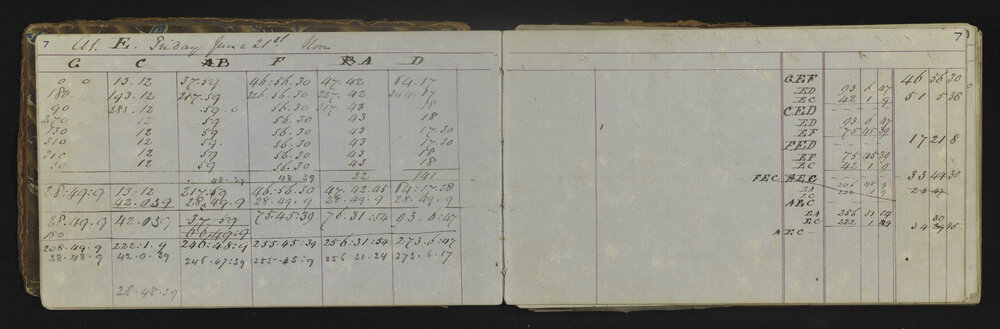 7 At E. Friday June 21st Noon
G C AB F BA D
0 0 13.12 37.59 46:56.30 47.42 64.17
180. 193.12 217.59 226.56.30 227.42 244.17
90 283.12 59.0 56.30 317.43 18
270 12 59 56.30 43 18
130 12 59. 56.30 43 17.30
310 12 59 56.30 43 18
210 12 59 56.30 43 18
30 12 59 56.30 43 18
48.39 48.39 22 141
28.49.9 13.12 217.59 46.56.30 47.42.45 64.17.38
42.03.9 28.49.9 28.49.9 28.49.9 28.49.9
68.49.9 42.039 37.59 75.45:39 76.31.54 93.6:47
180 66.49.9
208.49.9 222.1.9 246:48:9 255.45:39 256:31:54 273.6:47
28.48.9 42.0.39 246.47:39 255.45:9 256.31.24 273.6.17
28.48.39
7
GEF 46 56 30
ED 93 6 47
EC 42 1 9 51 5 38
CED
ED 93 6 47
EF 75 45 39 17 21 8
FED
EF 75 45 30
EC 42 1 9
33 44 30
FEC AEC
EA 246 48 9
24 47
ABC
EA 256 31 54
EC 222 1 39
AEC 34 30 45